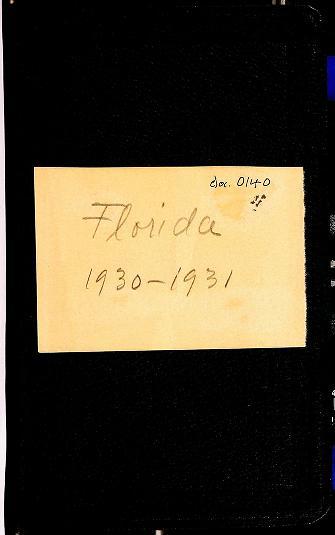 doc. 0140
Florida
1930-1931